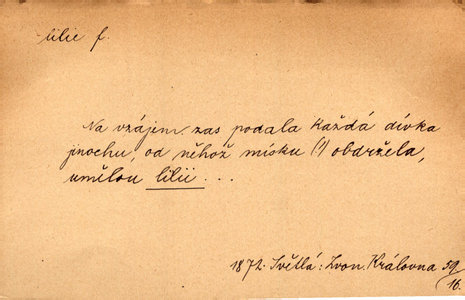 lilie f.
Na vzájem zas podala každá dívka
jinochu, od něhož misku (!) obdržela,
umělou lilii ...
1872. Světlá: Zvon. Královna 59/16.